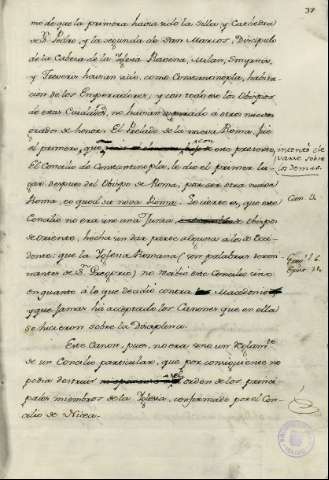 37
mo de que la primera havia sido la Silla, y Cathedra
de S. Pedro, y la segunda de San Marcos, Discipulo
de la Cabeza de la Iglesia. Ravena, Milan, Smyrnis,
y Treveris havian sido, como Constantinopla, habita
cion de los Emperadores, y con todo eso los Obispos
de estas Ciudades no havian aspirado a otro nuevo
grado de honor. El Prelado de la nueva Roma fue
el primero, que con este pretexto intentó ele
varse sobre
los demas.
El Concilio de Constantinopla, le dio el primer lu
gar despues del Obispo de Roma, por ser otra nueva
Roma, eo quod sit nova Roma. Lo cierto es, que este
Can. 3.
Concilio no era sino una Junta de Obispos
de Oriente, hecha sin dar parte alguna a los de Occi
dente: que la Iglesia Romana (son palabras termi
nantes de S. Gregorio) no recibió este Concilio sino
en quanto á lo que decidió contra Macedonio
y que jamas ha aceptado los Canones que en ella
se hicieron sobre la Disciplina.
Este Canon, pues, no era sino un Reglamto
de un Concilio particular, que por consiguiente no
podia destruir el orden de los princi
pales miembros de la Iglesia, confirmado por el Con
cilio de Nicea.